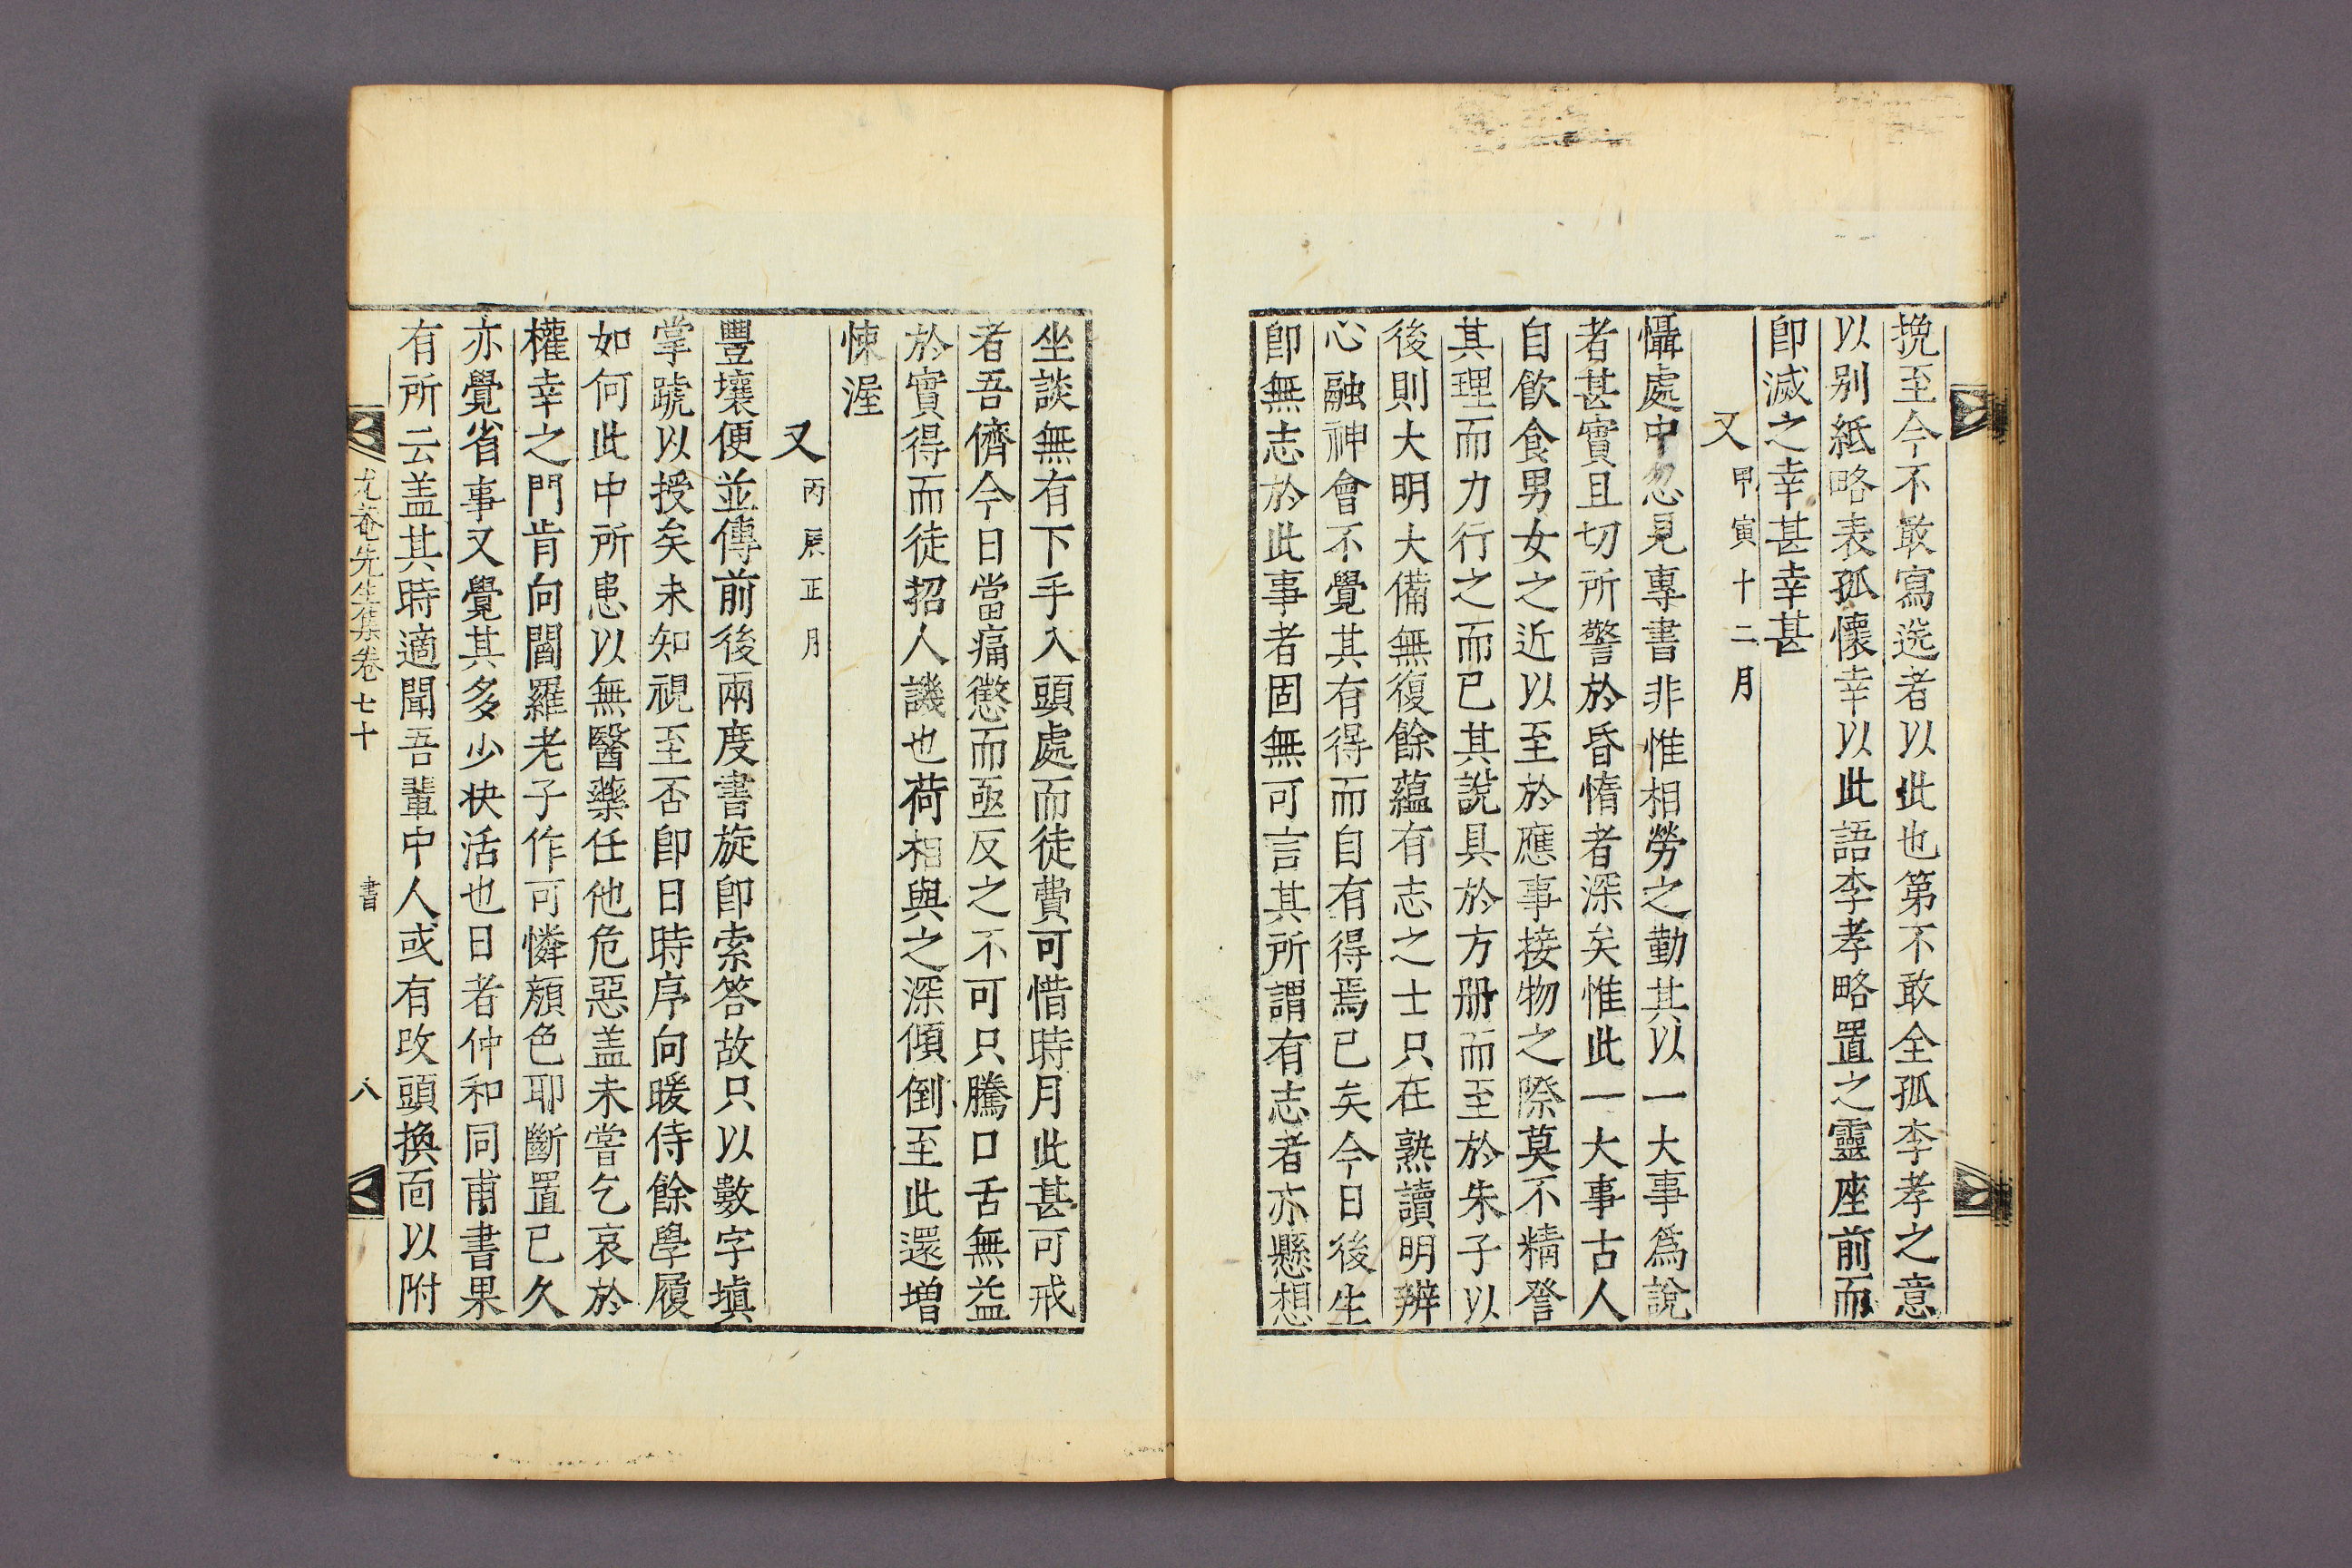 挽至今不敢寫送者以此也第不敢全孤李孝之意
以别紙略表孤懷幸以此語李孝略置之靈座前而
卽滅之幸甚幸甚
又甲寅十二月
懾處中忽見專書非惟相勞之勤其以一大事爲說
者甚實且切所警於昏惰者深矣惟此一大事古人
自飮食男女之近以至於應事接物之際莫不精詧
其理而力行之而已其說具於方册而至於朱子以
後則大明大備無復餘蘊有志之士只在熟讀明辨
心融神會不覺其有得而自有得焉已矣今日後生
卽無志於此事者固無可言其所謂有志者亦懸想
坐談無有下手入頭處而徒費可惜時月此甚可戒
者吾儕今日當痛懲而亟反之不可只騰口舌無益
於實得而徒招人譏也荷相與之深傾倒至此還增
悚渥
又丙辰正月
豐壤便並傳前後兩度書旋卽索答故只以數字塡
掌䟽以授矣未知視至否卽日時序向暖侍餘學履
如何此中所患以無醫藥任他危惡盖未嘗乞哀於
權幸之門肯向閻羅老子作可憐顔色耶斷置已久
亦覺省事又覺其多少快活也日者仲和同甫書果
有所云盖其時適聞吾輩中人或有改頭換面以附
尤菴先生集卷七十 書 八